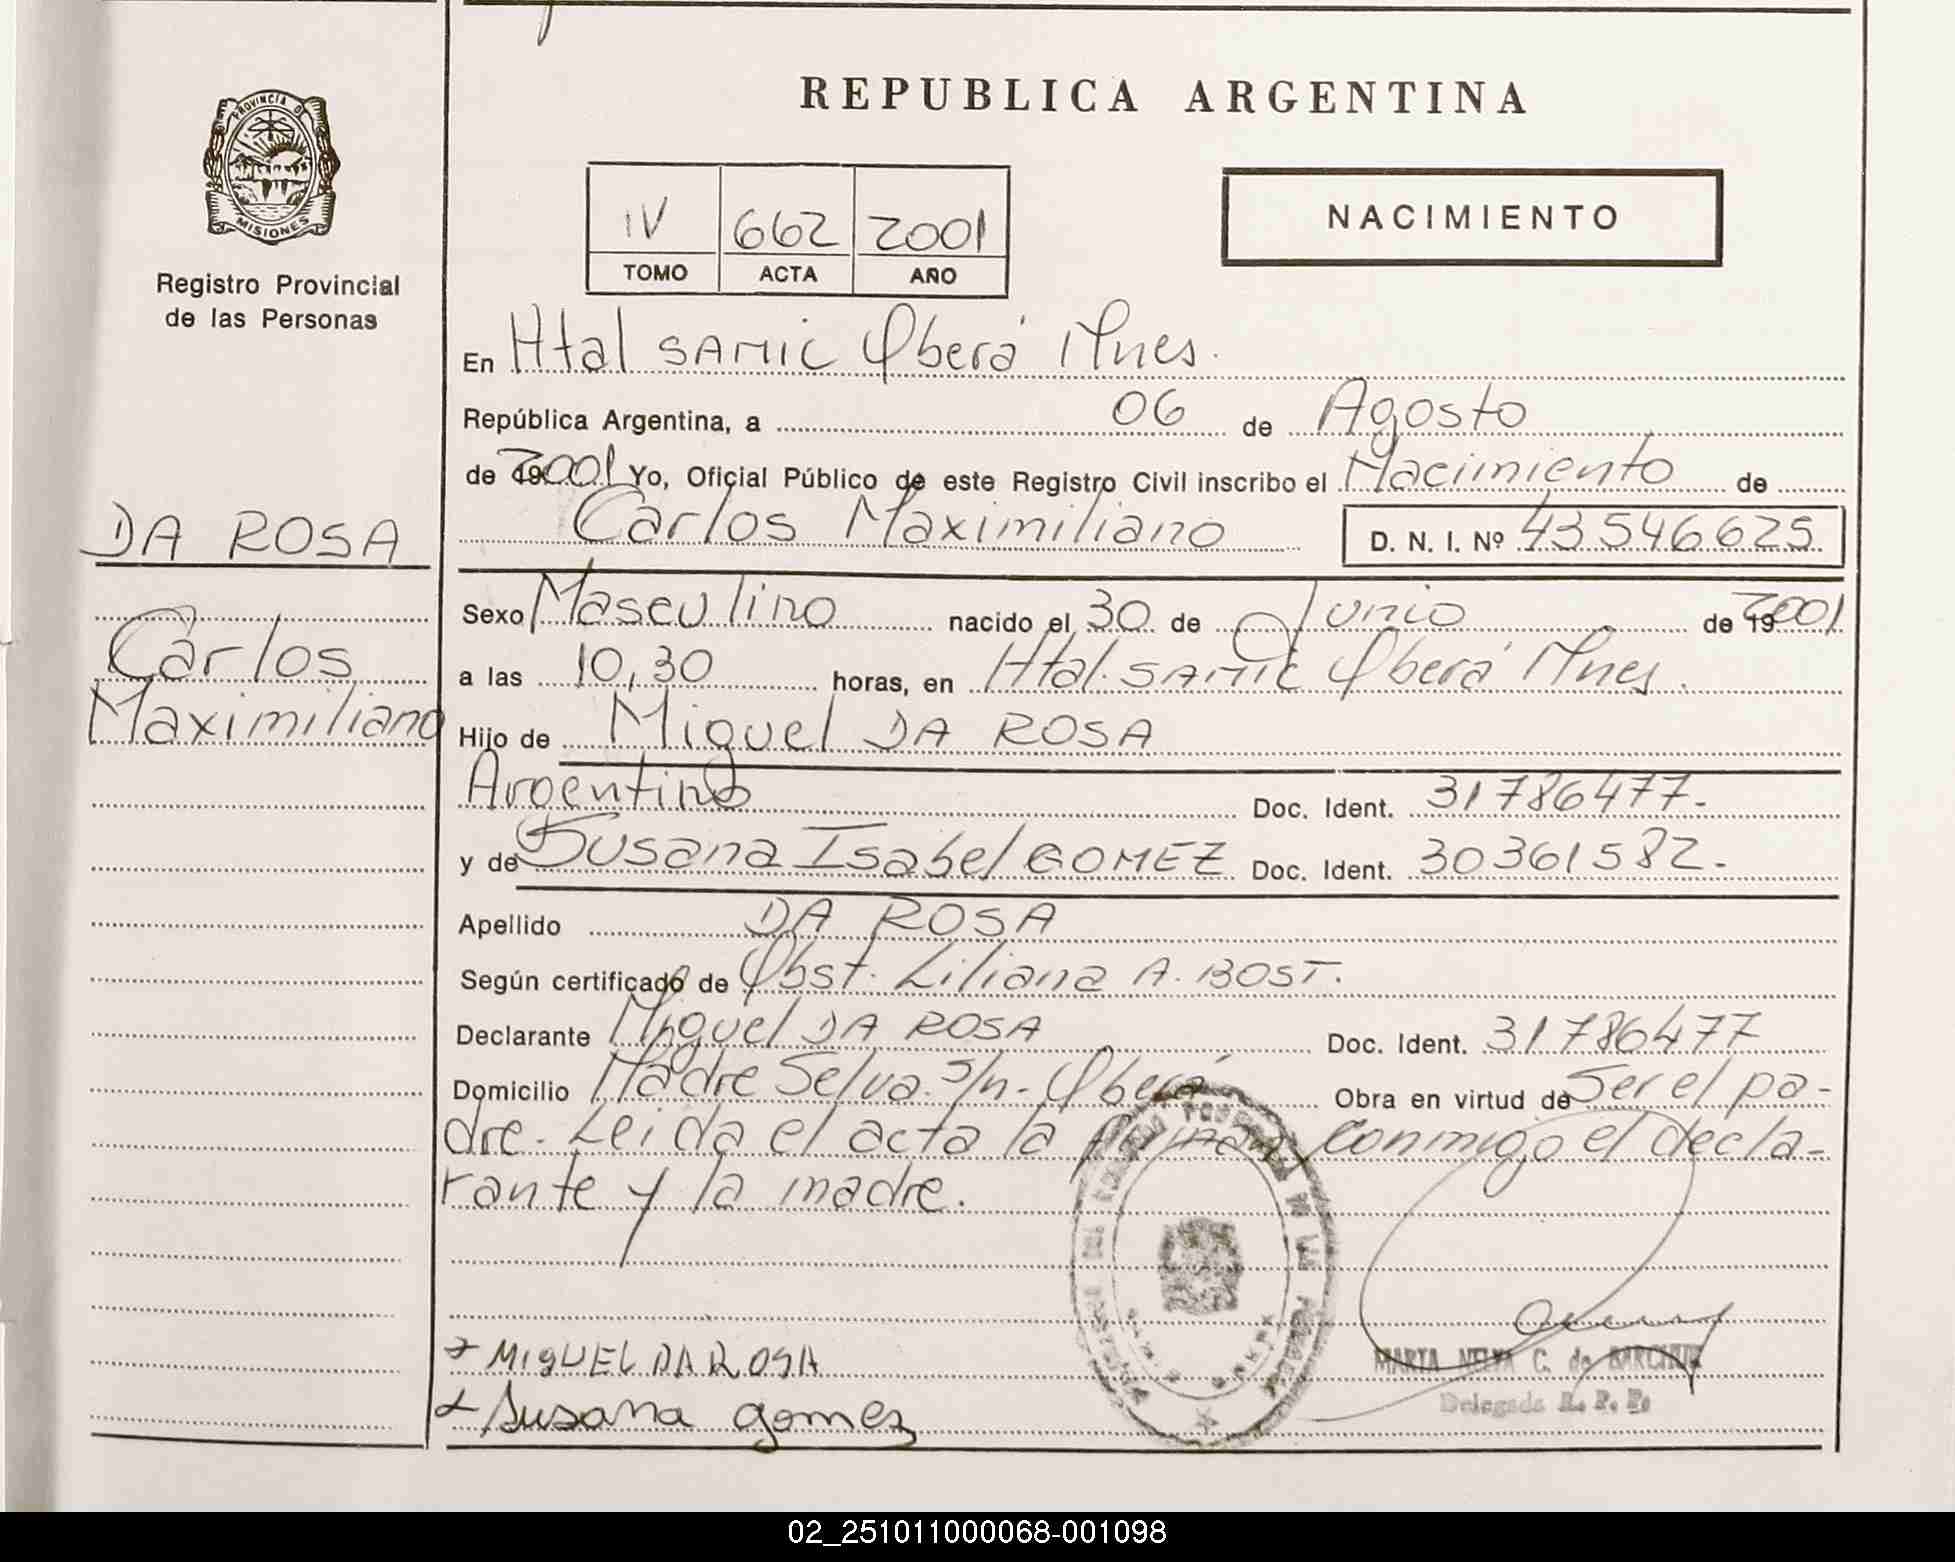 REPUBLICA ARGENTINA
PROVINCIA DE
MISIONES
Registro Provincial
de las Personas
NACIMIENTO
IV 662 2001
TOMO ACTA AÑO
En Htal SAMIC Oberá Mnes.
República Argentina, a 06 de Agosto
de 2001 Yo, Oficial Público de este Registro Civil inscribo el Nacimiento de
Carlos Maximiliano D. N. I. Nº 43546625
DA ROSA
Carlos
Maximiliano
Sexo Masculino nacido el 30 de Junio de 2001
a las 10,30 horas, en Htal. SAMIC Oberá Mnes.
Hijo de Miguel DA ROSA
Argentino Doc. Ident. 31786477.
y de Susana Isabel GOMEZ Doc. Ident. 30361582.
Apellido DA ROSA
Según certificado de Obst. Liliana A. BOST.
Declarante Miguel DA ROSA Doc. Ident. 31786477
Domicilio Madre Selva S/n - Oberá Obra en virtud de Ser el pa-
dre. Leida el acta la firman conmigo el decla-
rante y la madre.
MIGUEL DA ROSA
Susana gomez
MARTA NELVA C. de
Delegada R. P. P.
02_251011000068-001098